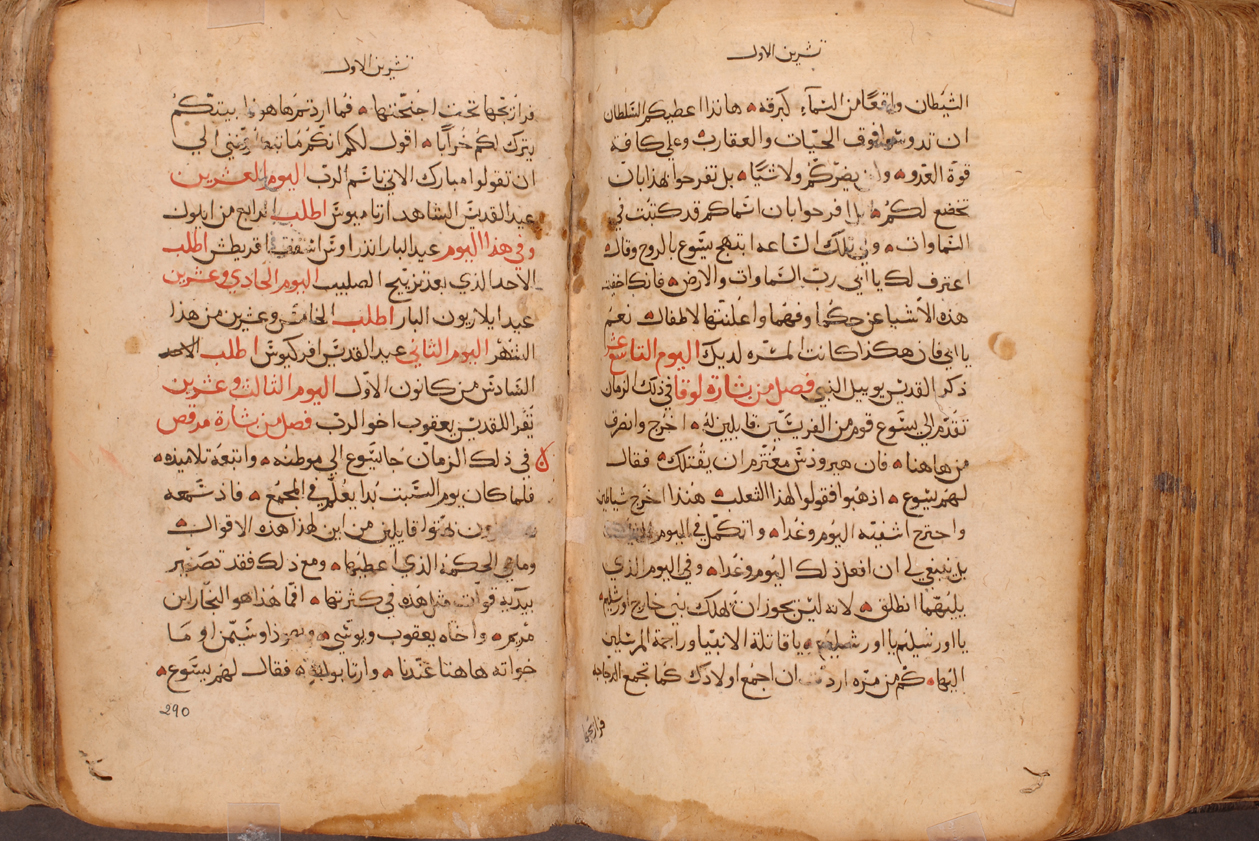 تشرين الاول
الشيطان واقعًا من السمآء كبرقه هانذا اعطيكم السلطان
ان تدوسوا فوق الحيات والعقارب وعلى كافة
قوة العدو ولن يضركم ولا شيًا بل تفرحوا بهذا بان
تخضع لكم بل افرحوا بان اسماكم قد كتبت في
السماوات وفي تلك الساعه ابتهج يسوع بالروح وقال
اعترف لك يا ابي رب السماوات والارض فانك اخفيت
هذه الاشيا عن حكما وفهما واعلنتها لاطفال نعم
يا ابي فان هكذا كانت المسره لديك اليوم التاسع عشر
ذكر القديس يوييل النبي فصل من بشارة لوقا في ذلك الزمان
تقدم الى يسوع قوم من الفريسيين قايلين له اخرج وانصرف
من هاهنا فان هيرودس معتزم ان يقتلك فقال
لهم يسوع اذهبوا فقولوا لهذا الثعلب هنذا اخرج شياطين
واجترح اشفيه اليوم وغدا واتكمل في اليوم
بل ينبغي لي ان افعل ذلك اليوم وغدا وفي اليوم الذي
يليهما انطلق لانه ليس يجوز ان يهلك نبي خارج اورشليم
يا اورشليم يا اورشليم يا قاتلة الانبيا وراجمة المرسلين
اليها كم من مره اردت ان اجمع اولادك كما تجمع الدجاجه
فراريجها
تشرين الاول
فراريجها تحت اجنحتها فما اردتم ها هوذا بيتكم
يترك لكم خرابًا اقول لكم انكم ما الى
ان تقولوا مبارك الاتي باسم الرب اليوم العشرين
عيد القديس الشاهد ارتاميوس اطلب الرابع من ايلول
وفي هذا اليوم عيد البار اندراوس اسقف اقريطش اطلب
الاحد الذي بعد تزييح الصليب اليوم الحادي وعشرين
عيد ايلاريون البار اطلب الخامس وعشرين من هذا
الشهر اليوم الثاني عيد القديس افركيوس اطلب الاحد
السادس من كانون الاول اليوم الثالث وعشرين
نقرا للقديس يعقوب اخو الرب فصل من بشارة مرقص
في ذلك الزمان جا يسوع الى موطنه واتبعه تلاميذه
فلما كان يوم السبت بدا يعلم في المجمع فاذ سمعه
بهتوا قايلين من اين لهذا هذه الاقوال
وما هي الحكمة الذي اعطيها ومع ذلك فقد تصير
بيديه قوات مثل هذه في كثرتها افما هذا هو النجار ابن
مريم واخاه يعقوب ويوسي ويهوذا وشيمن او ما
خواته هاهنا عندنا وارتابوا فقال لهم يسوع
290